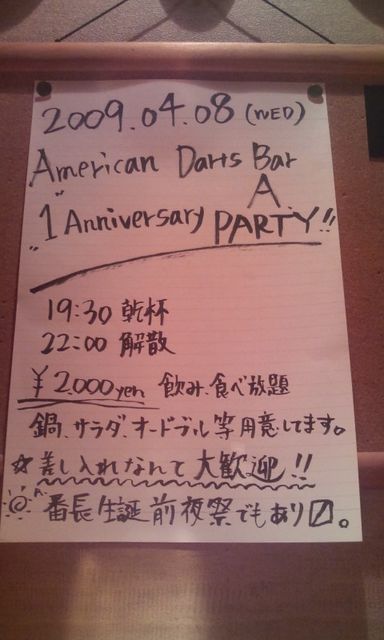 2009.04.08 (WED)
American Darts Bar
A
"1 Anniversary PARTY!!
19:30 乾杯
22:00 解散
¥2,000yen 飲み、食べ放題
鍋、サラダ、オードブル等用意してます。
☆差し入れなんて大歓迎!!
番長生誕前夜祭でもあり〼。